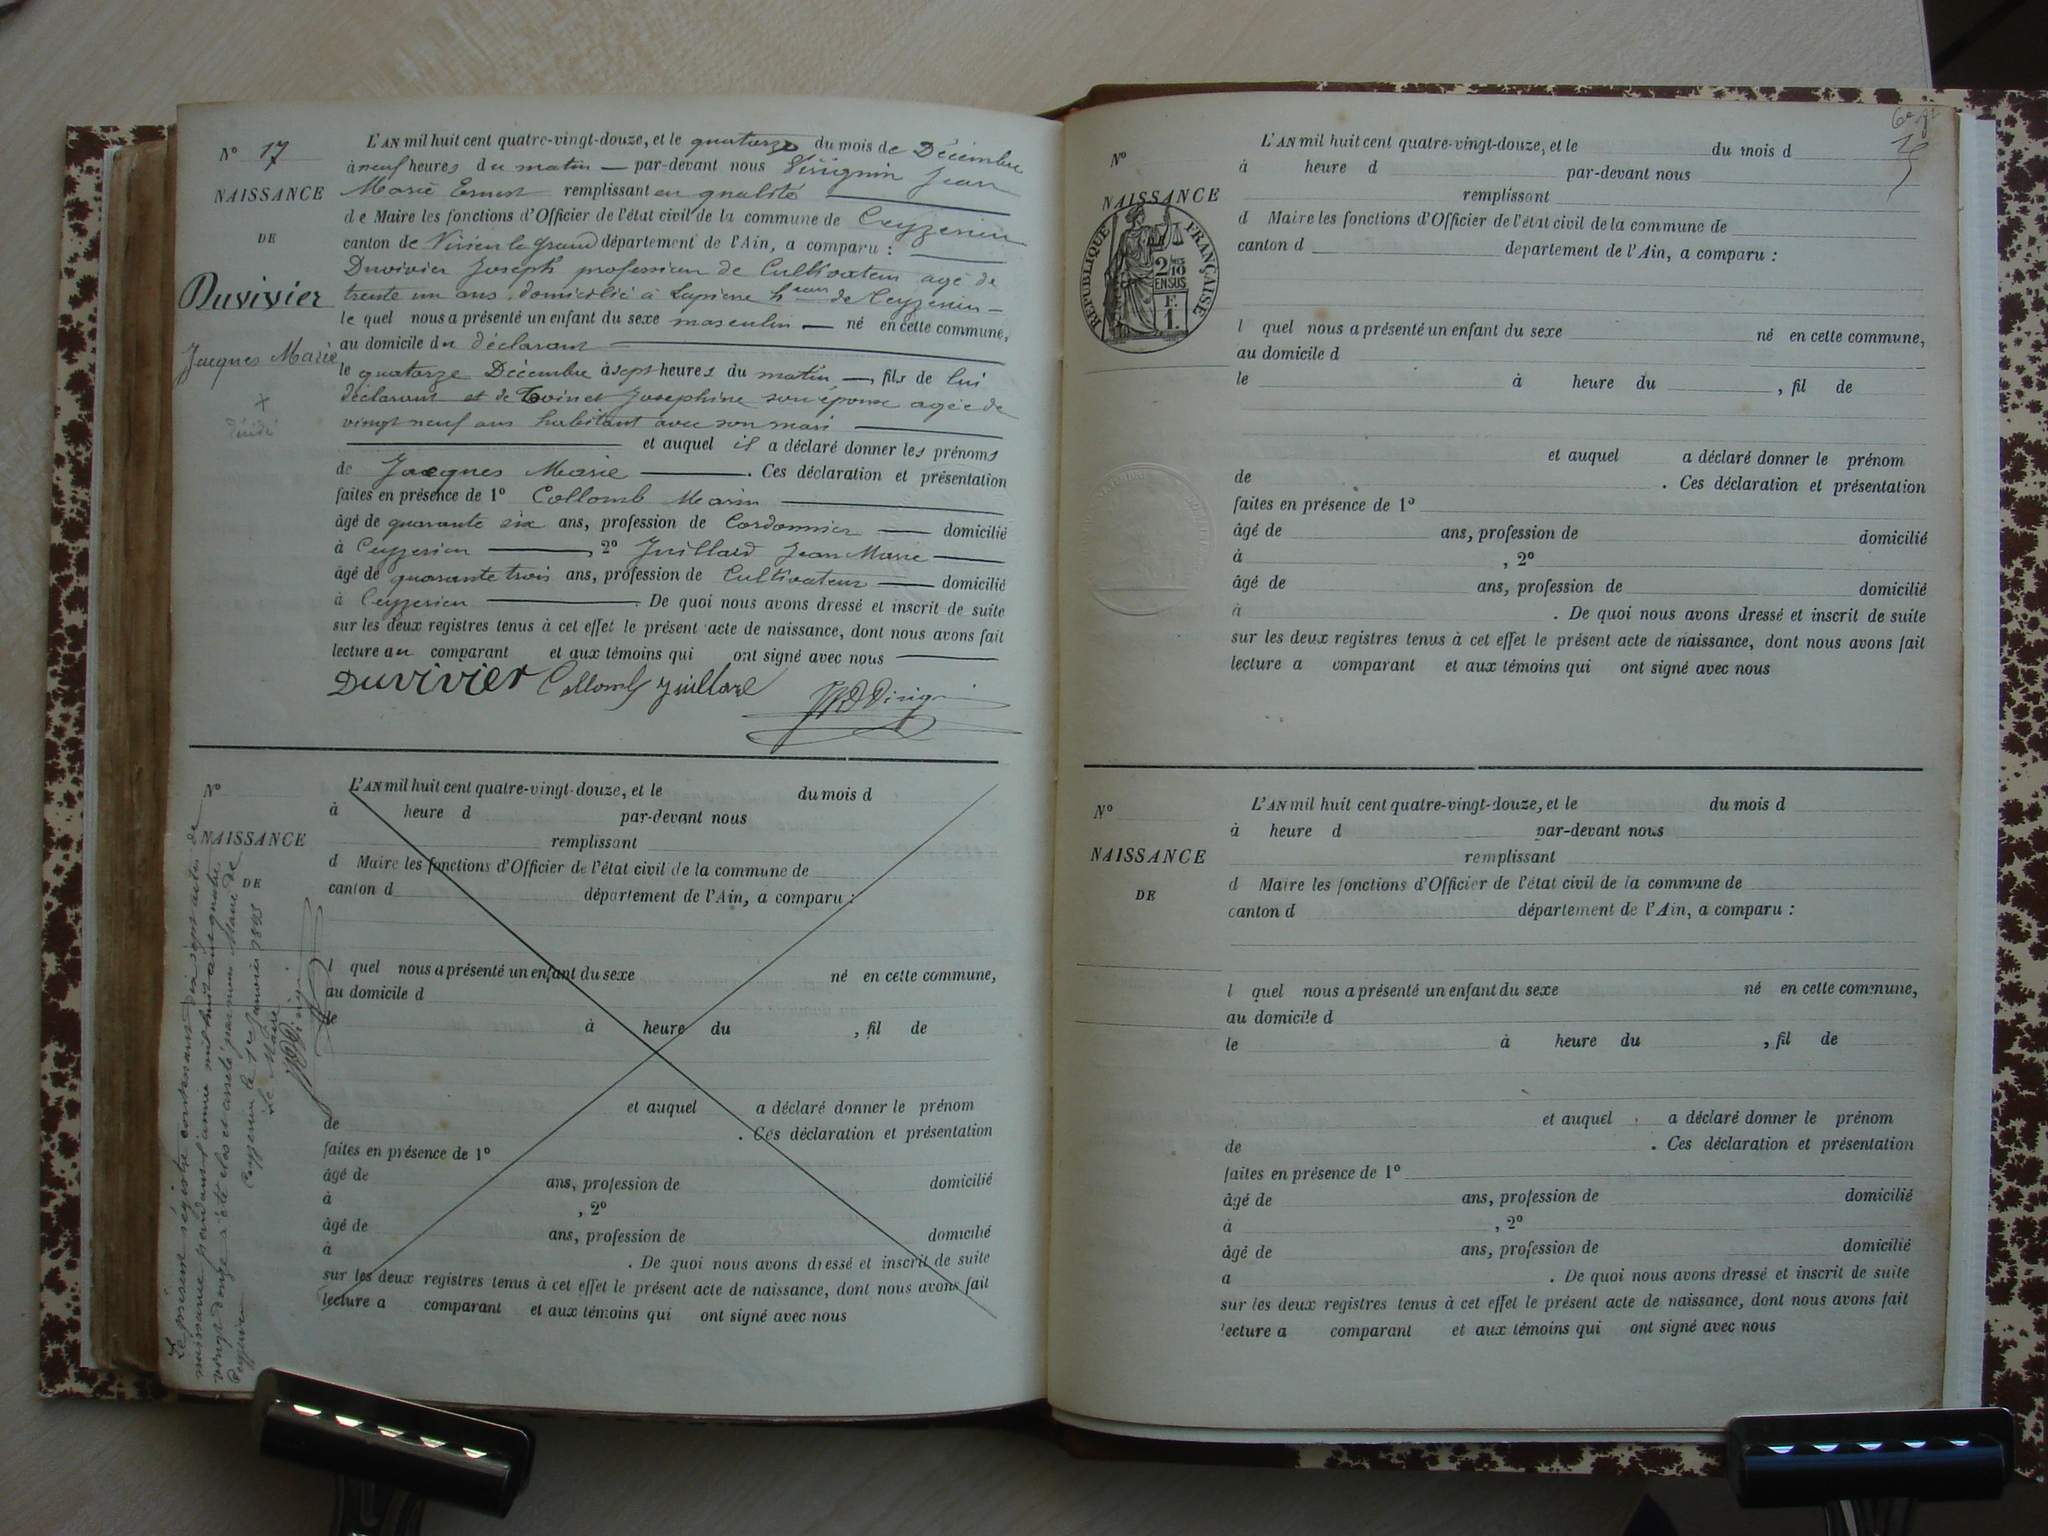 N° 17
NAISSANCE
DE
Duvivier
Jacques Marie
L'AN mil huit cent quatre-vingt-douze, et le quatorze du mois de Décembre
à neuf heures du matin — par-devant nous Virignin Jean
Marie Ernest remplissant en qualité
de Maire les fonctions d'Officier de l'état civil de la commune de Ceyzerieu
canton de Virieu le grand département de l'Ain, a comparu :
Duvivier Joseph profession de Cultivateur agé de
trente un ans domicilié à Lapierre h.eau de Ceyzerieu —
le quel nous a présenté un enfant du sexe masculin — né en cette commune,
au domicile du déclarant
le quatorze Décembre à sept heures du matin —, fils de lui
déclarant et de Toinet Josephine son épouse agée de
vingt neuf ans habitant avec son mari
et auquel il a déclaré donner les prénoms
de Jacques Marie — . Ces déclaration et présentation
faites en présence de 1° Collomb Marin
âgé de quarante six ans, profession de Cordonnier — domicilié
à Ceyzerieu —, 2° Juillard Jean Marie —
âgé de quarante trois ans, profession de Cultivateur — domicilié
à Ceyzerieu — . De quoi nous avons dressé et inscrit de suite
sur les deux registres tenus à cet effet le présent acte de naissance, dont nous avons fait
lecture au comparant et aux témoins qui ont signé avec nous —
Duvivier Collomb Juillard
N°
NAISSANCE
DE
L'AN mil huit cent quatre-vingt-douze, et le du mois d
à heure d par-devant nous
remplissant
d Maire les fonctions d'Officier de l'état civil de la commune de
canton d département de l'Ain, a comparu :
quel nous a présenté un enfant du sexe né en cette commune,
au domicile d
le à heure du , fil de
et auquel a déclaré donner le prénom
de . Ces déclaration et présentation
faites en présence de 1°
âgé de ans, profession de domicilié
à , 2°
âgé de ans, profession de domicilié
à . De quoi nous avons dressé et inscrit de suite
sur les deux registres tenus à cet effet le présent acte de naissance, dont nous avons fait
lecture a comparant et aux témoins qui ont signé avec nous
Le présent régistre contenant dix sept actes de
naissance pendant l'année mil huit cent quatre
vingt douze a été clos et arrêté par nous Maire de
Ceyzerieu
Ceyzerieu le 1er Janvier 1893
Le Maire
N°
NAISSANCE
RÉPUBLIQUE FRANÇAISE
2/10
EN SUS
F.
1.
L'AN mil huit cent quatre-vingt-douze, et le du mois d
à heure d par-devant nous
remplissant
d Maire les fonctions d'Officier de l'état civil de la commune de
canton d département de l'Ain, a comparu :
l quel nous a présenté un enfant du sexe né en cette commune,
au domicile d
le à heure du , fil de
et auquel a déclaré donner le prénom
de . Ces déclaration et présentation
faites en présence de 1°
âgé de ans, profession de domicilié
à , 2°
âgé de ans, profession de domicilié
à . De quoi nous avons dressé et inscrit de suite
sur les deux registres tenus à cet effet le présent acte de naissance, dont nous avons fait
lecture a comparant et aux témoins qui ont signé avec nous
N°
NAISSANCE
DE
L'AN mil huit cent quatre-vingt-douze, et le du mois d
à heure d par-devant nous
remplissant
d Maire les fonctions d'Officier de l'état civil de la commune de
canton d département de l'Ain, a comparu :
l quel nous a présenté un enfant du sexe né en cette commune,
au domicile d
le à heure du , fil de
et auquel a déclaré donner le prénom
de . Ces déclaration et présentation
faites en présence de 1°
âgé de ans, profession de domicilié
à , 2°
âgé de ans, profession de domicilié
a . De quoi nous avons dressé et inscrit de suite
sur les deux registres tenus à cet effet le présent acte de naissance, dont nous avons fait
lecture a comparant et aux témoins qui ont signé avec nous